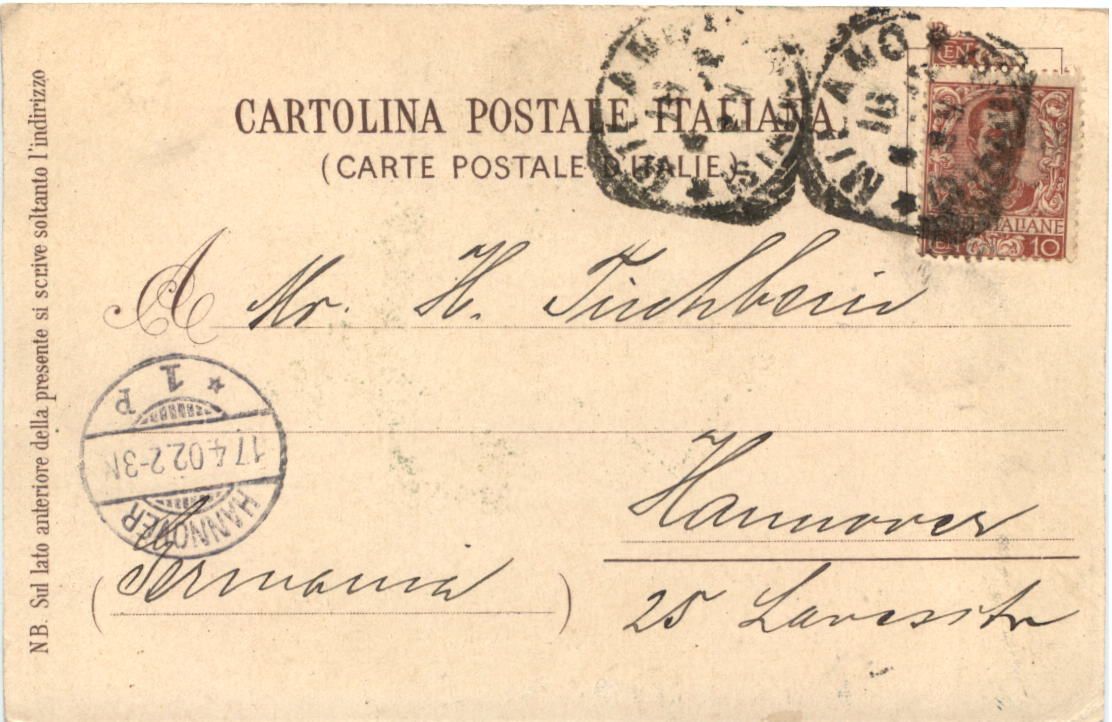 CARTOLINA POSTALE ITALIANA
(CARTE POSTALE D'ITALIE)
MILANO
MILANO
16
ITALIANE
10
A Mr. H. Tischbein
Hannover
25 Lavesstr
(Germania)
HANNOVER
17.4.02.2-3N
* 1 P
NB. Sul lato anteriore della presente si scrive soltanto l'indirizzo